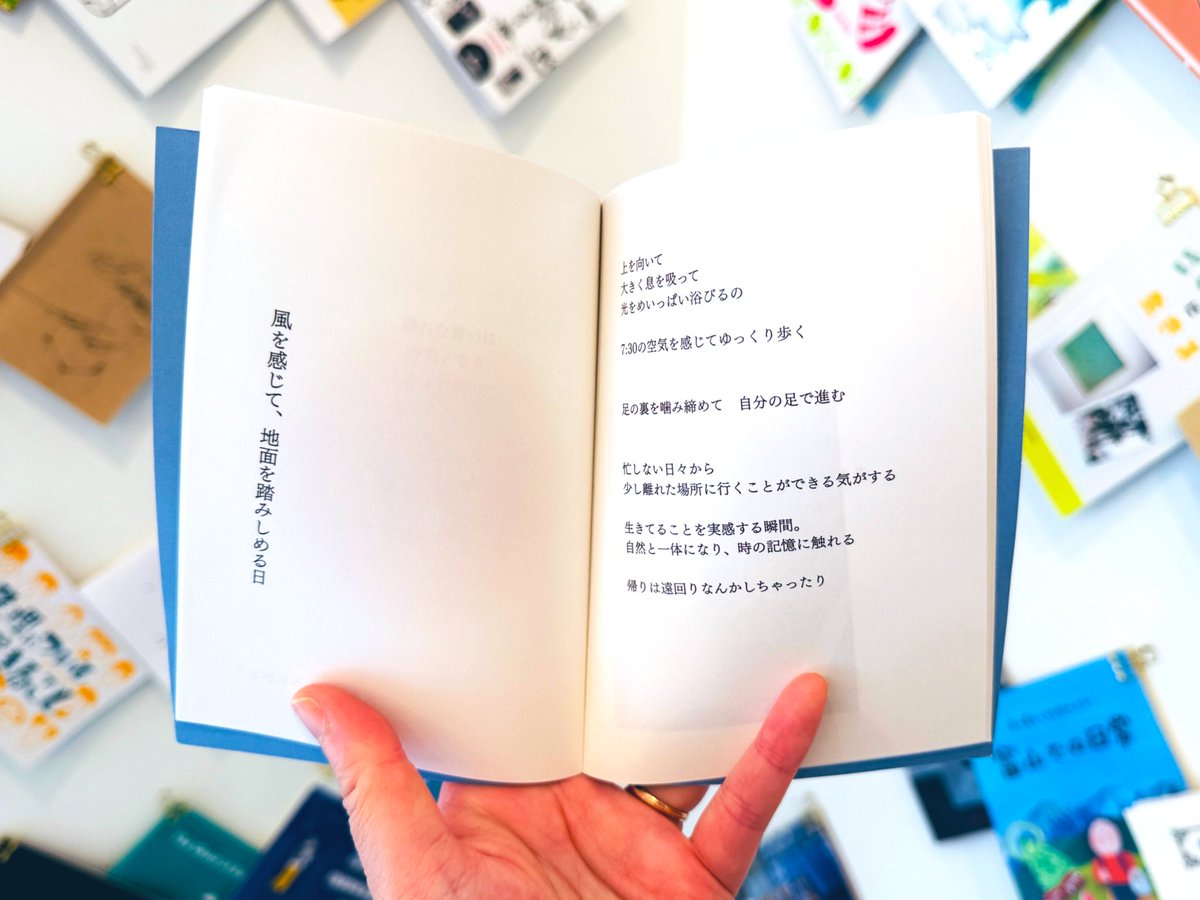 風を感じて、地面を踏みしめる日
上を向いて
大きく息を吸って
光をめいっぱい浴びるの
7:30の空気を感じてゆっくり歩く
足の裏を噛み締めて　自分の足で進む
忙しない日々から
少し離れた場所に行くことができる気がする
生きてることを実感する瞬間。
自然と一体になり、時の記憶に触れる
帰りは遠回りなんかしちゃったり